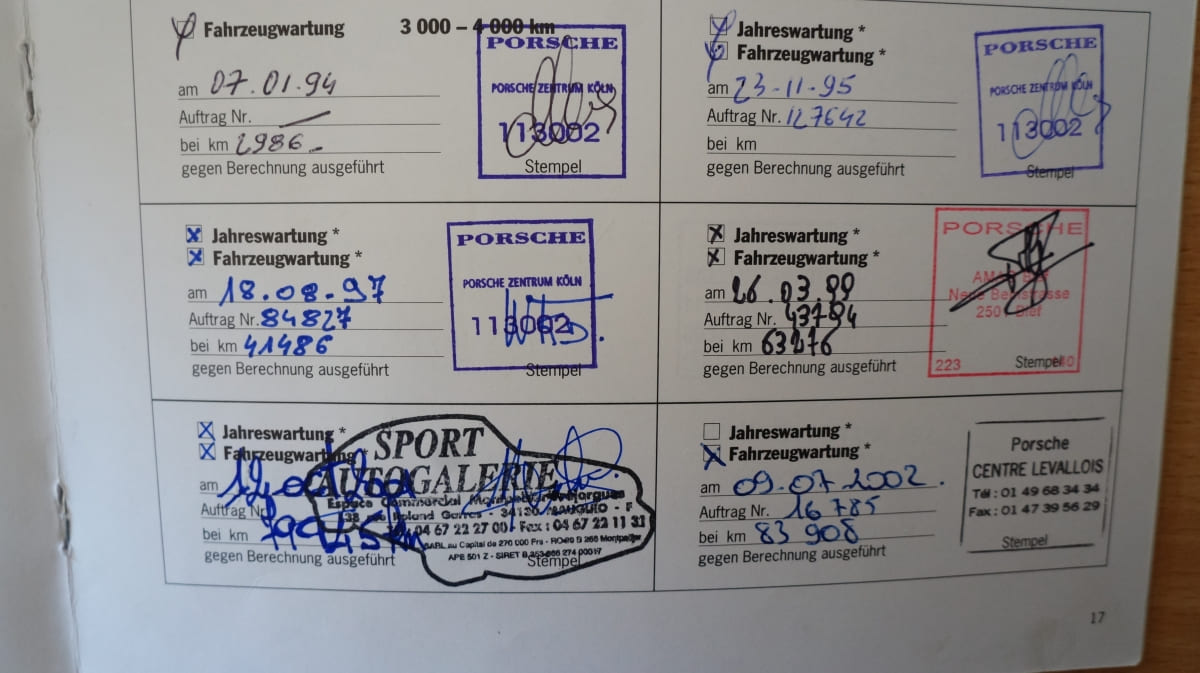 Fahrzeugwartung 3 000 – 4 000 km
am 07.01.94
Auftrag Nr. —
bei km 2986.-
gegen Berechnung ausgeführt
PORSCHE
PORSCHE ZENTRUM KÖLN
113002
Stempel
Jahreswartung *
Fahrzeugwartung *
am 23-11-95
Auftrag Nr. 127642
bei km
gegen Berechnung ausgeführt
PORSCHE
PORSCHE ZENTRUM KÖLN
113002
Stempel
Jahreswartung *
Fahrzeugwartung *
am 18.08.97
Auftrag Nr. 84827
bei km 41486
gegen Berechnung ausgeführt
PORSCHE
PORSCHE ZENTRUM KÖLN
113002
Stempel
Jahreswartung *
Fahrzeugwartung *
am 26.03.99
Auftrag Nr. 43784
bei km 63276
gegen Berechnung ausgeführt
PORSCHE
Neue
2501 Biel
223
Stempel
Jahreswartung *
Fahrzeugwartung *
am
Auftrag Nr.
bei km
gegen Berechnung ausgeführt
SPORT
AUTOGALERIE
Espace Commercial
34130 MAUGUIO - F
04 67 22 27 00 - Fax : 04 67 22 11 31
SARL au Capital de 270 000 Frs - RCS
APE 501 Z - SIRET
Stempel
Jahreswartung *
Fahrzeugwartung *
am 09.07.2002.
Auftrag Nr. 16785
bei km 83 908
gegen Berechnung ausgeführt
Porsche
CENTRE LEVALLOIS
Tél : 01 49 68 34 34
Fax : 01 47 39 56 29
Stempel
17